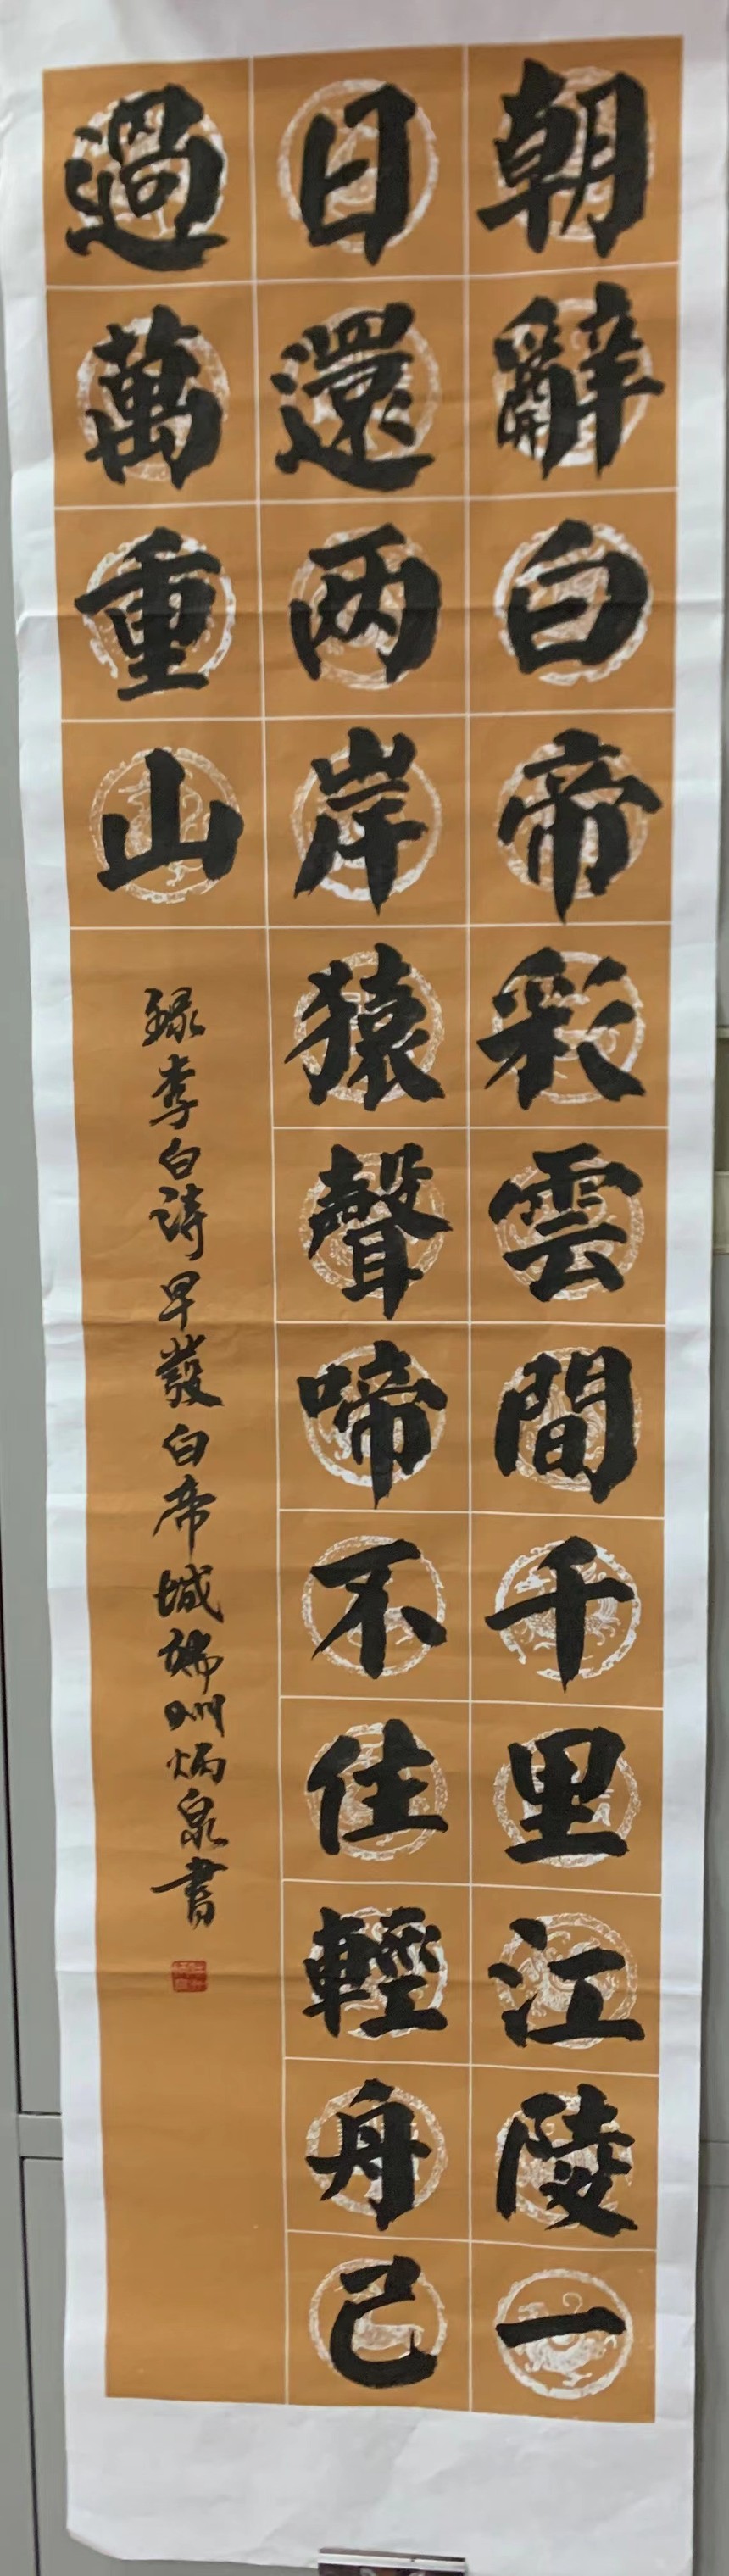 朝辭白帝彩雲間千里江陵一
日還两岸猿聲啼不住輕舟己
過萬重山
録李白詩早發白帝城端州炳泉書